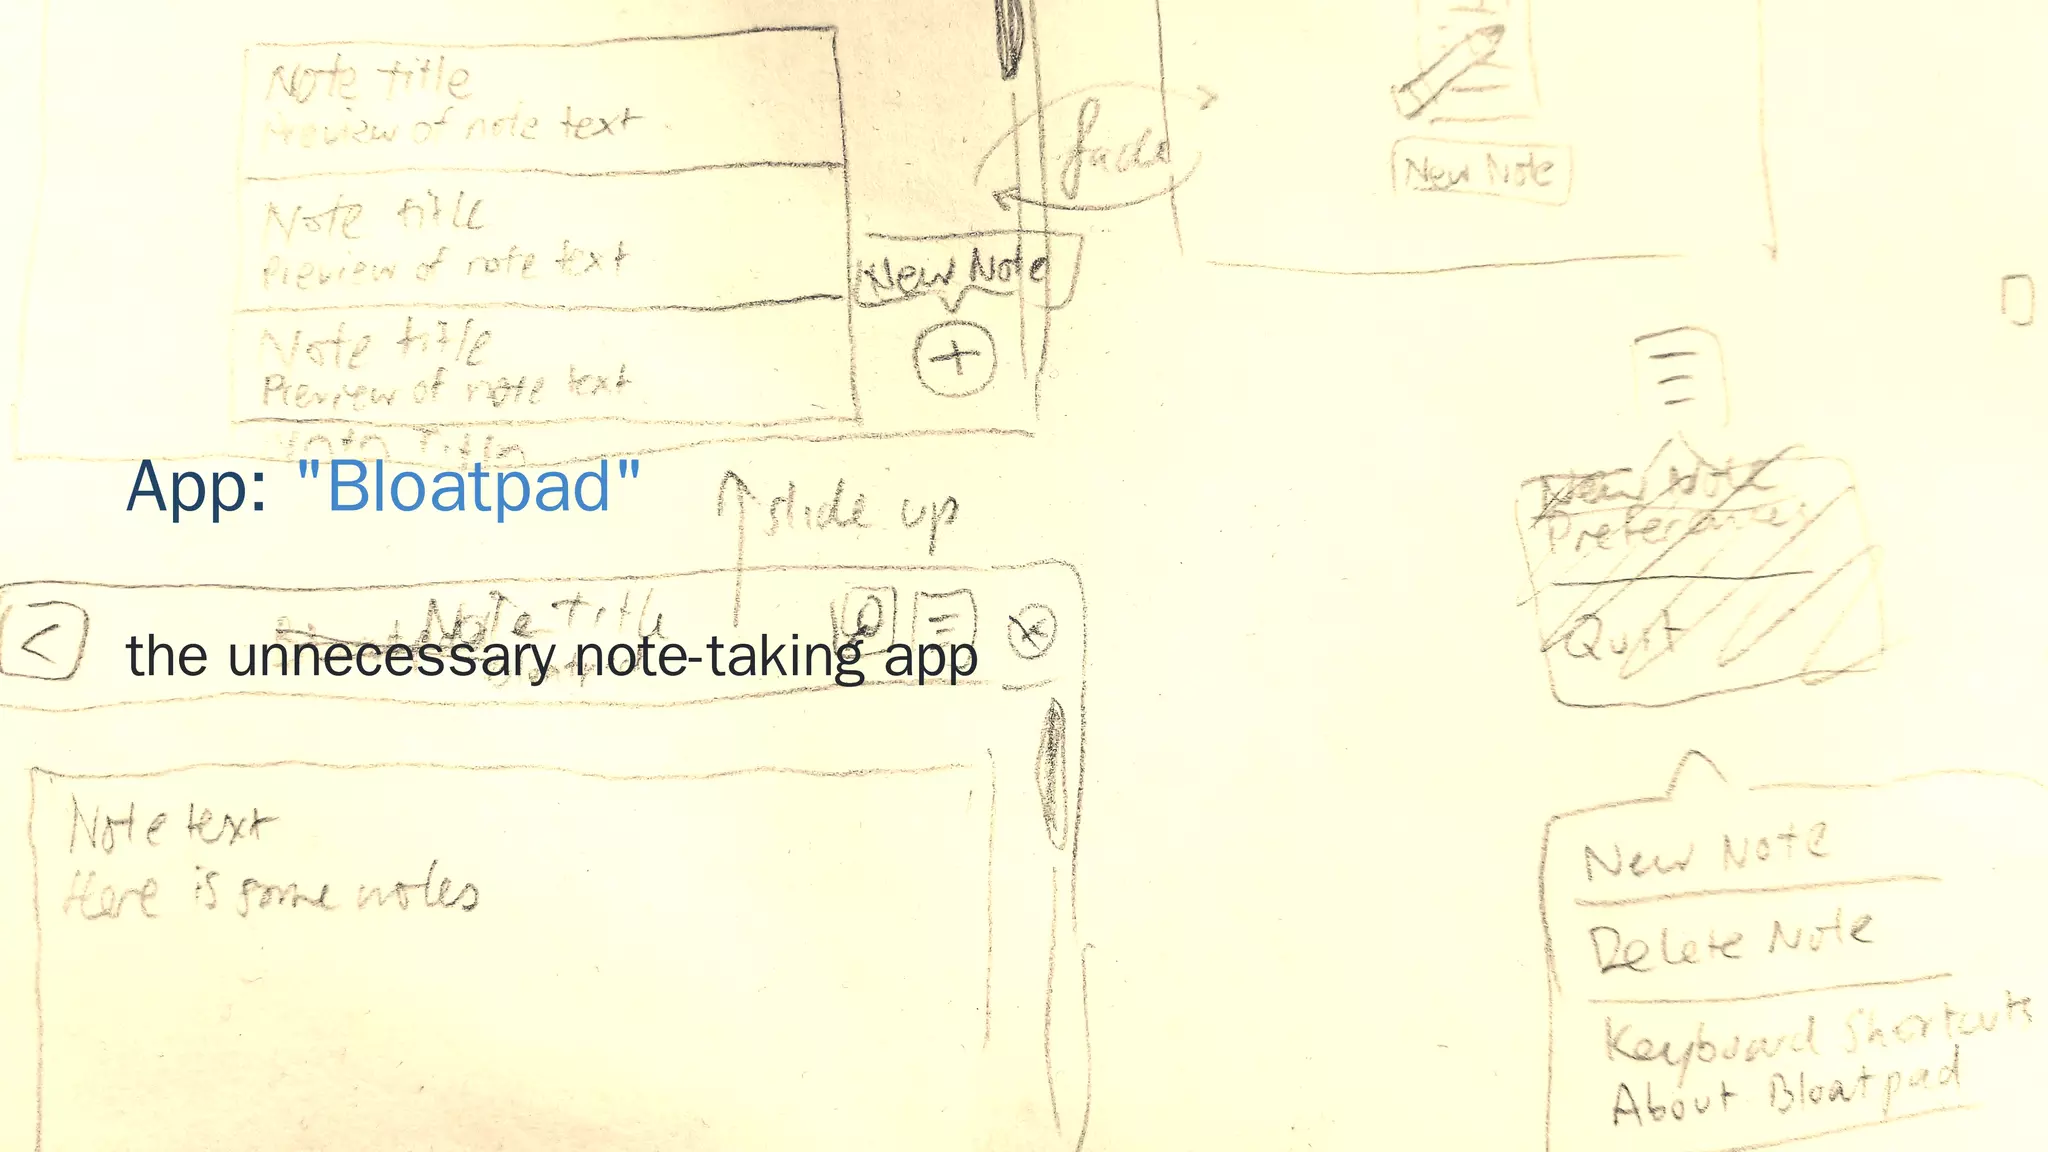 Note title
Preview of note text
Note title
Preview of note text
New Note
Note title
Preview of note text
Note Title
fade
New Note
App: "Bloatpad"
slide up
Note Title
the unnecessary note-taking app
Note text
Here is some notes
New Note
Preferences
Quit
New Note
Delete Note
Keyboard Shortcuts
About Bloatpad